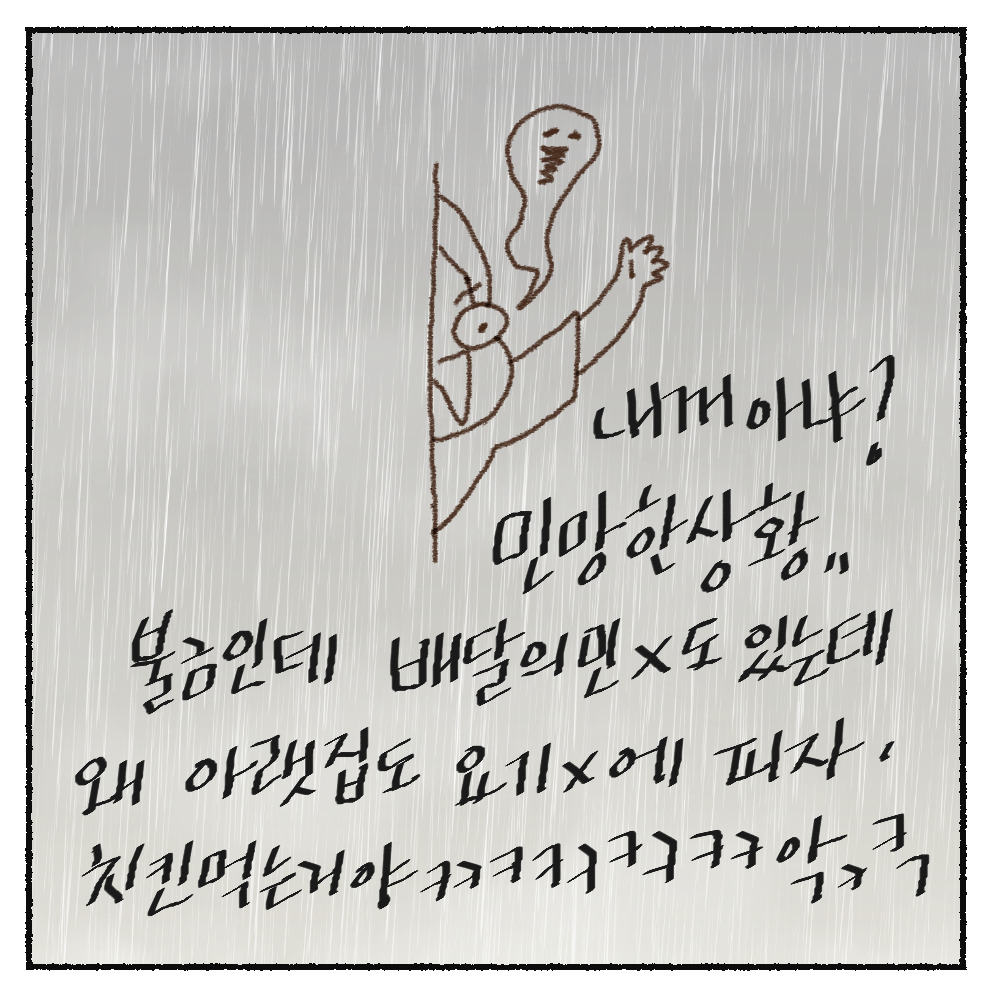 내꺼야냐?
민망한상황..
불금인데 배달의민x도 있는데
왜 아랫집도 요기x에 피자,
치킨먹는거야ㅋㅋㅋㅋㅋㅋㅋㅋㅋ악ㅋㅋㅋ